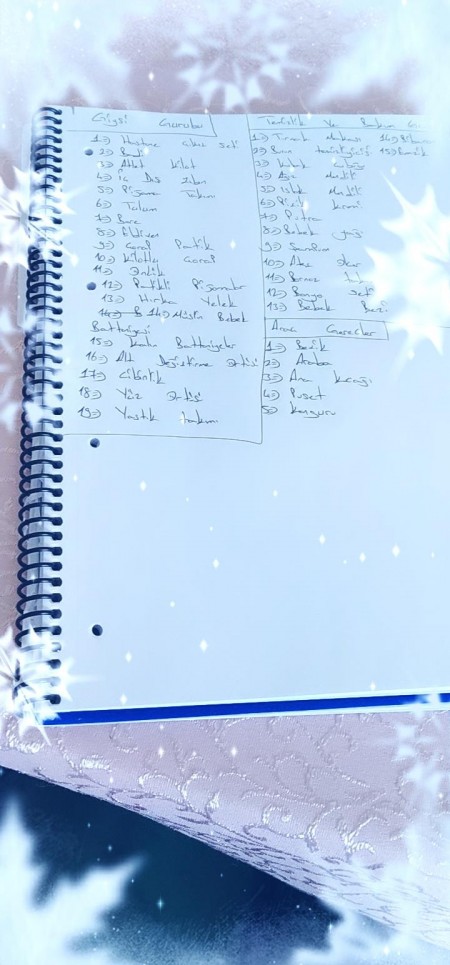 Giysi Gurubu
1=) Hastane Çıkış Seti
2=) Badi
3=) Atlet Külot
4=) İç Dış Zıbın
5=) Pijama Takımı
6=) Tulum
7=) Bere
8=) Eldiven
9=) Çorap Patik
10=) Külotlu Çorap
11=) Önlük
12=) Patikli Pijamalar
13=) Hırka Yelek
14=) Müslin Bebek
Battaniyesi
15=) Battaniyeler
16=) Alt Değiştirme Örtüsü
17=) Cibinlik
18=) Yüz Örtüsü
19=) Yastık takımı
Temizlik Ve Bakım
1=) Tırnak Makası 14=)
2=) Burun 15=)
3=) Kulak
4=)
5=) Islak Mendil
6=) Pişik Kremi
7=) Pudra
8=) Bebek yağı
9=) Şampuan
10=) Ateş
11=) Bornoz
12=) Banyo Seti
13=) Bebek Bezi
Araç Gereçler
1=) Beşik
2=) Araba
3=) Ana Kucağı
4=) Puset
5=) Kanguru